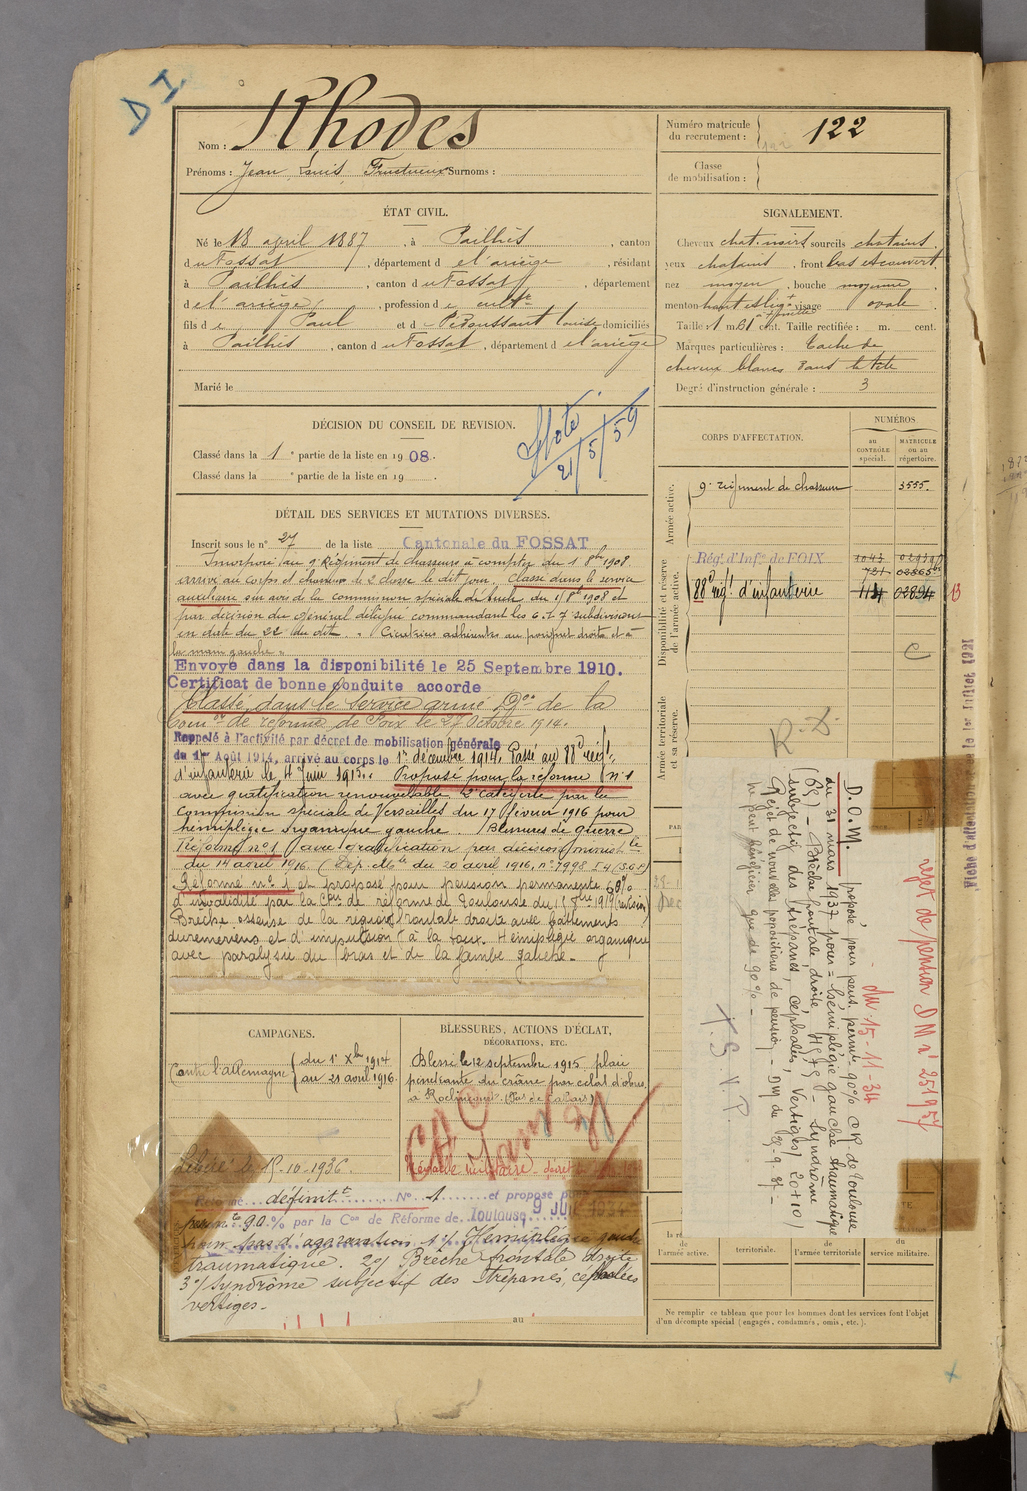 D I
Nom : Rhodes
Prénoms : Jean Louis Fructueux Surnoms :
Numéro matricule
du recrutement : 122
Classe
de mobilisation :
ÉTAT CIVIL.
Né le 18 april 1887, à Pailhès, canton
du Fossat, département de l'ariège, résidant
à Pailhès, canton du Fossat, département
de l'ariège, profession de cultr
fils de Paul et d domiciliés
à Pailhès, canton du Fossat, département de l'ariège
Marié le
SIGNALEMENT.
Cheveux chat. noirs sourcils chatains
yeux chatains, front bas et couvert
nez moyen, bouche moyenne
menton visage ovale
Taille : 1 m. 61 cent. Taille rectifiée : m. cent.
Marques particulières : tache de
cheveux blancs dans la tête
Degré d'instruction générale : 3
DÉCISION DU CONSEIL DE REVISION.
Classé dans la 1e partie de la liste en 1908.
Classé dans la e partie de la liste en 19 .
21/5/59
CORPS D'AFFECTATION.
NUMÉROS
au
CONTRÔLE
spécial.
MATRICULE
ou au
répertoire.
Armée active.
9e régiment de chasseurs 3555.
Disponibilité et réserve
de l'armée active.
Régt d'Infie de FOIX 1043
721 02365
88e régt d'infanterie 1124 02894 B
C
Armée territoriale
et sa réserve.
R. D.
DÉTAIL DES SERVICES ET MUTATIONS DIVERSES.
Inscrit sous le n° 27 de la liste Cantonale du FOSSAT
Incorporé au 9e Régiment de chasseurs à compter du 1 8bre 1908
arrivé au corps et chasseur de 2e classe le dit jour. Classé dans le service
auxiliaire sur avis de la commission spéciale de Auch du 1 8bre 1908 et
par décision du général délégué commandant les 6 et 7 subdivisions
en date du 22 du dit. "Cicatrices adhérentes au poignet droit et à
la main gauche".
Envoyé dans la disponibilité le 25 Septembre 1910.
Certificat de bonne conduite accordé
Classé dans le service armé Don de la
Comon de réforme de Foix le 27 Octobre 1914.
Rappelé à l'activité par décret de mobilisation générale
du 1er Août 1914, arrivé au corps le 1er décembre 1914. Passé au 88e régt
d'infanterie le 4 juin 1915. Proposé pour la réforme n° 1
avec gratification renouvelable 2e catégorie par la
commission spéciale de Versailles du 17 février 1916 pour
hémiplégie organique gauche. Blessures de guerre
Réformé n° 1 avec gratification par décision ministlle
du 14 avril 1916 (Dép. Mlle du 20 avril 1916, n° 7998
Réformé n° 1 et proposé pour pension permanente 60%
d'invalidité par la Con de réforme de Toulouse du 1919
Brèche osseuse de la région frontale droite avec battements
duremeriens et d'impulsion à la toux. Hémiplégie organique
avec paralysie du bras et de la jambe gauche.
CAMPAGNES.
Contre l'Allemagne du 1er Xbre 1914
au 21 avril 1916.
BLESSURES, ACTIONS D'ÉCLAT,
DÉCORATIONS, ETC.
Blessé le 12 septembre 1915 plaie
pénétrante du crâne par éclat d'obus
à Roclincourt. (Pas de Calais)
Médaille militaire
Libéré le 15-10-1936
Réformé définitt N° 1 et proposé
90% par la Con de Réforme de Toulouse 9 JUIL 1934
pour pas d'aggravation 1°/ Hémiplégie gauche
traumatique. 2°/ Brèche frontale droite
3°/ Syndrôme subjectif des trépanés, céphalées
vertiges.
au
D.O.M. proposé pour pens. permte 90% CR de Toulouse
du 31 mai 1937 pour = hémiplégie gauche traumatique
(65) - Brèche frontale droite - Syndrome
(subjectif des trépanés, céphalées, vertiges) 20+10/
Rejet de nouvelles propositions de pension - DM du 25-9-37 -
ne peut bénéficier que de 90% -
rejet de pension DM n° 25195
du 15-11-34
de
l'armée active.
territoriale.
de
l'armée territoriale
du
service militaire.
Ne remplir ce tableau que pour les hommes dont les services font l'objet
d'un décompte spécial (engagés, condamnés, omis, etc.).